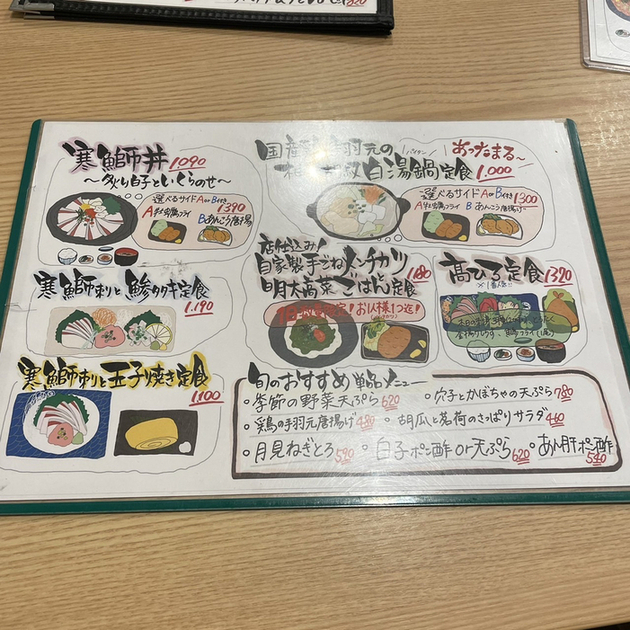 寒鰤丼 1090
～炙り白子といくらのせ～
選べるサイドAorB付き 1390
A牡蠣フライ Bあんこう唐揚
寒鰤刺しと鯵タタキ定食
1.190
寒鰤刺しと玉子焼き定食
1.100
国産鶏手羽元の
白湯鍋定食 1.000
パイタン
あったまる～
選べるサイドAorB付き 1300
A牡蠣フライ B あんこう唐揚げ
店仕込み!
自家製手ごねメンチカツ
明太高菜ごはん定食
1180
お1人様1つ迄!
高ひろ定食 1390
※1番人気!!
旬のおすすめ単品メニュー
・季節の野菜天ぷら 620
・穴子とかぼちゃの天ぷら 780
・鶏の手羽元唐揚げ 480
・胡瓜と茗荷のさっぱりサラダ 460
・月見ねぎとろ 590
・白子ポン酢or天ぷら 620
・あん肝ポン酢 540